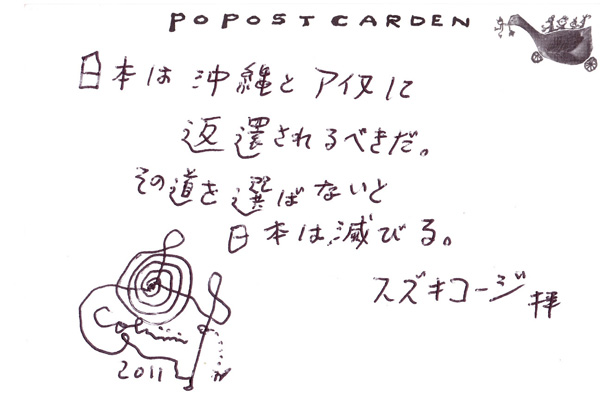 POPOST CARDEN
日本は 沖縄と アイヌに
返還されるべきだ。
その道を選ばないと
日本は滅びる。
スズキコージ 拝
2011